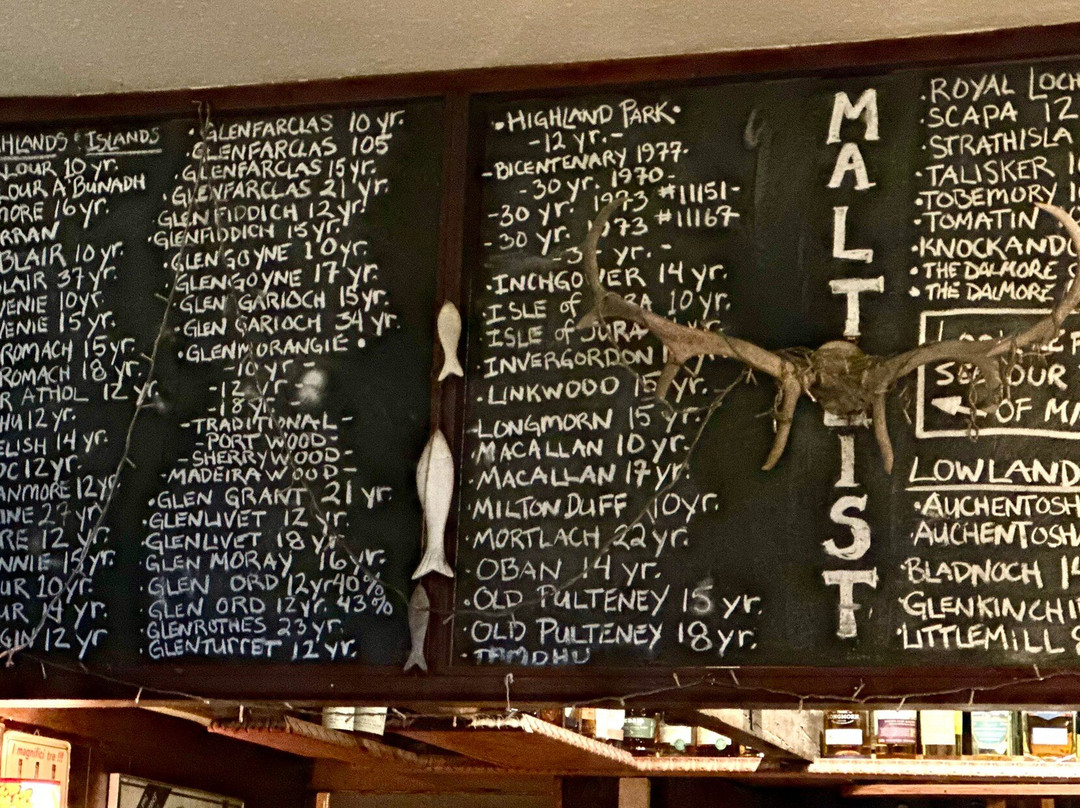 HLANDS & ISLANDS
LOUR 10 yr.
LOUR A'BUNADH
MORE 16 yr.
RRAN
BLAIR 10 yr.
LAIR 37 yr.
VENIE 10yr.
VENIE 15 yr.
ROMACH 15 yr.
ROMACH 18 yr.
R ATHOL 12 yr.
HU 12 yr.
ELISH 14 yr.
OC 12 yr.
ANMORE 12 yr.
INE 27 yr.
RE 12 yr.
NNIE 15 yr.
UR 10 yr.
UR 14 yr.
GIN 12 yr.
• GLENFARCLAS 10 yr.
• GLENFARCLAS 105
• GLENFARCLAS 15 yr.
• GLENFARCLAS 21 yr.
GLENFIDDICH 12 yr.
• GLENFIDDICH 15 yr.
• GLENGOYNE 10 yr.
GLENGOYNE 17 yr.
• GLEN GARIOCH 15 yr.
• GLEN GARIOCH 34 yr.
• GLENMORANGIE •
-10 yr-
-12 yr-
-18 yr-
-TRADITIONAL-
-PORT WOOD-
-SHERRYWOOD-
-MADEIRA WOOD-
• GLEN GRANT 21 yr.
• GLENLIVET 12 yr.
• GLENLIVET 18 yr.
• GLEN MORAY 16 yr.
• GLEN ORD 12yr 40%
• GLEN ORD 12yr. 43%
• GLENROTHES 23 yr.
• GLENTURRET 12 yr.
• HIGHLAND PARK •
-12 yr.-
-BICENTENARY 1977-
-30 yr. 1970-
-30 yr. 1973 #11151-
-30 yr. 1973 #11167-
yr.-
• INCHGOWER 14 yr.
• ISLE of JURA 10 yr.
ISLE of JURA
• INVERGORDON
• LINKWOOD 15 yr.
• LONGMORN 15 yr.
• MACALLAN 10 yr.
• MACALLAN 17 yr.
• MILTONDUFF 10yr.
• MORTLACH 22 yr.
• OBAN 14 yr.
• OLD PULTENEY 15 yr.
• OLD PULTENEY 18 yr.
• TAMDHU
MALT LIST
• ROYAL LOCH
• SCAPA 12
• STRATHISLA
• TALISKER
• TOBEMORY
• TOMATIN
• KNOCKANDO
• THE DALMORE
• THE DALMORE
OUR
OF MA
LOWLAND
• AUCHENTOSH
AUCHENTOSH
• BLADNOCH 14
• GLENKINCHI
• LITTLEMILL 8
I magnifici tre !!!
LONGMORN